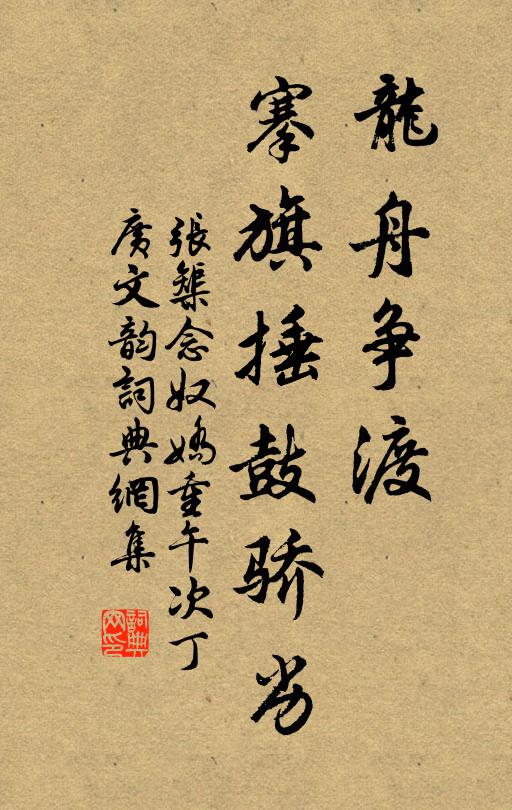 龍舟争渡
搴旗捶鼓骄劣
張榘念奴嬌重午次丁
廣文韵詞典網集
詞典网印